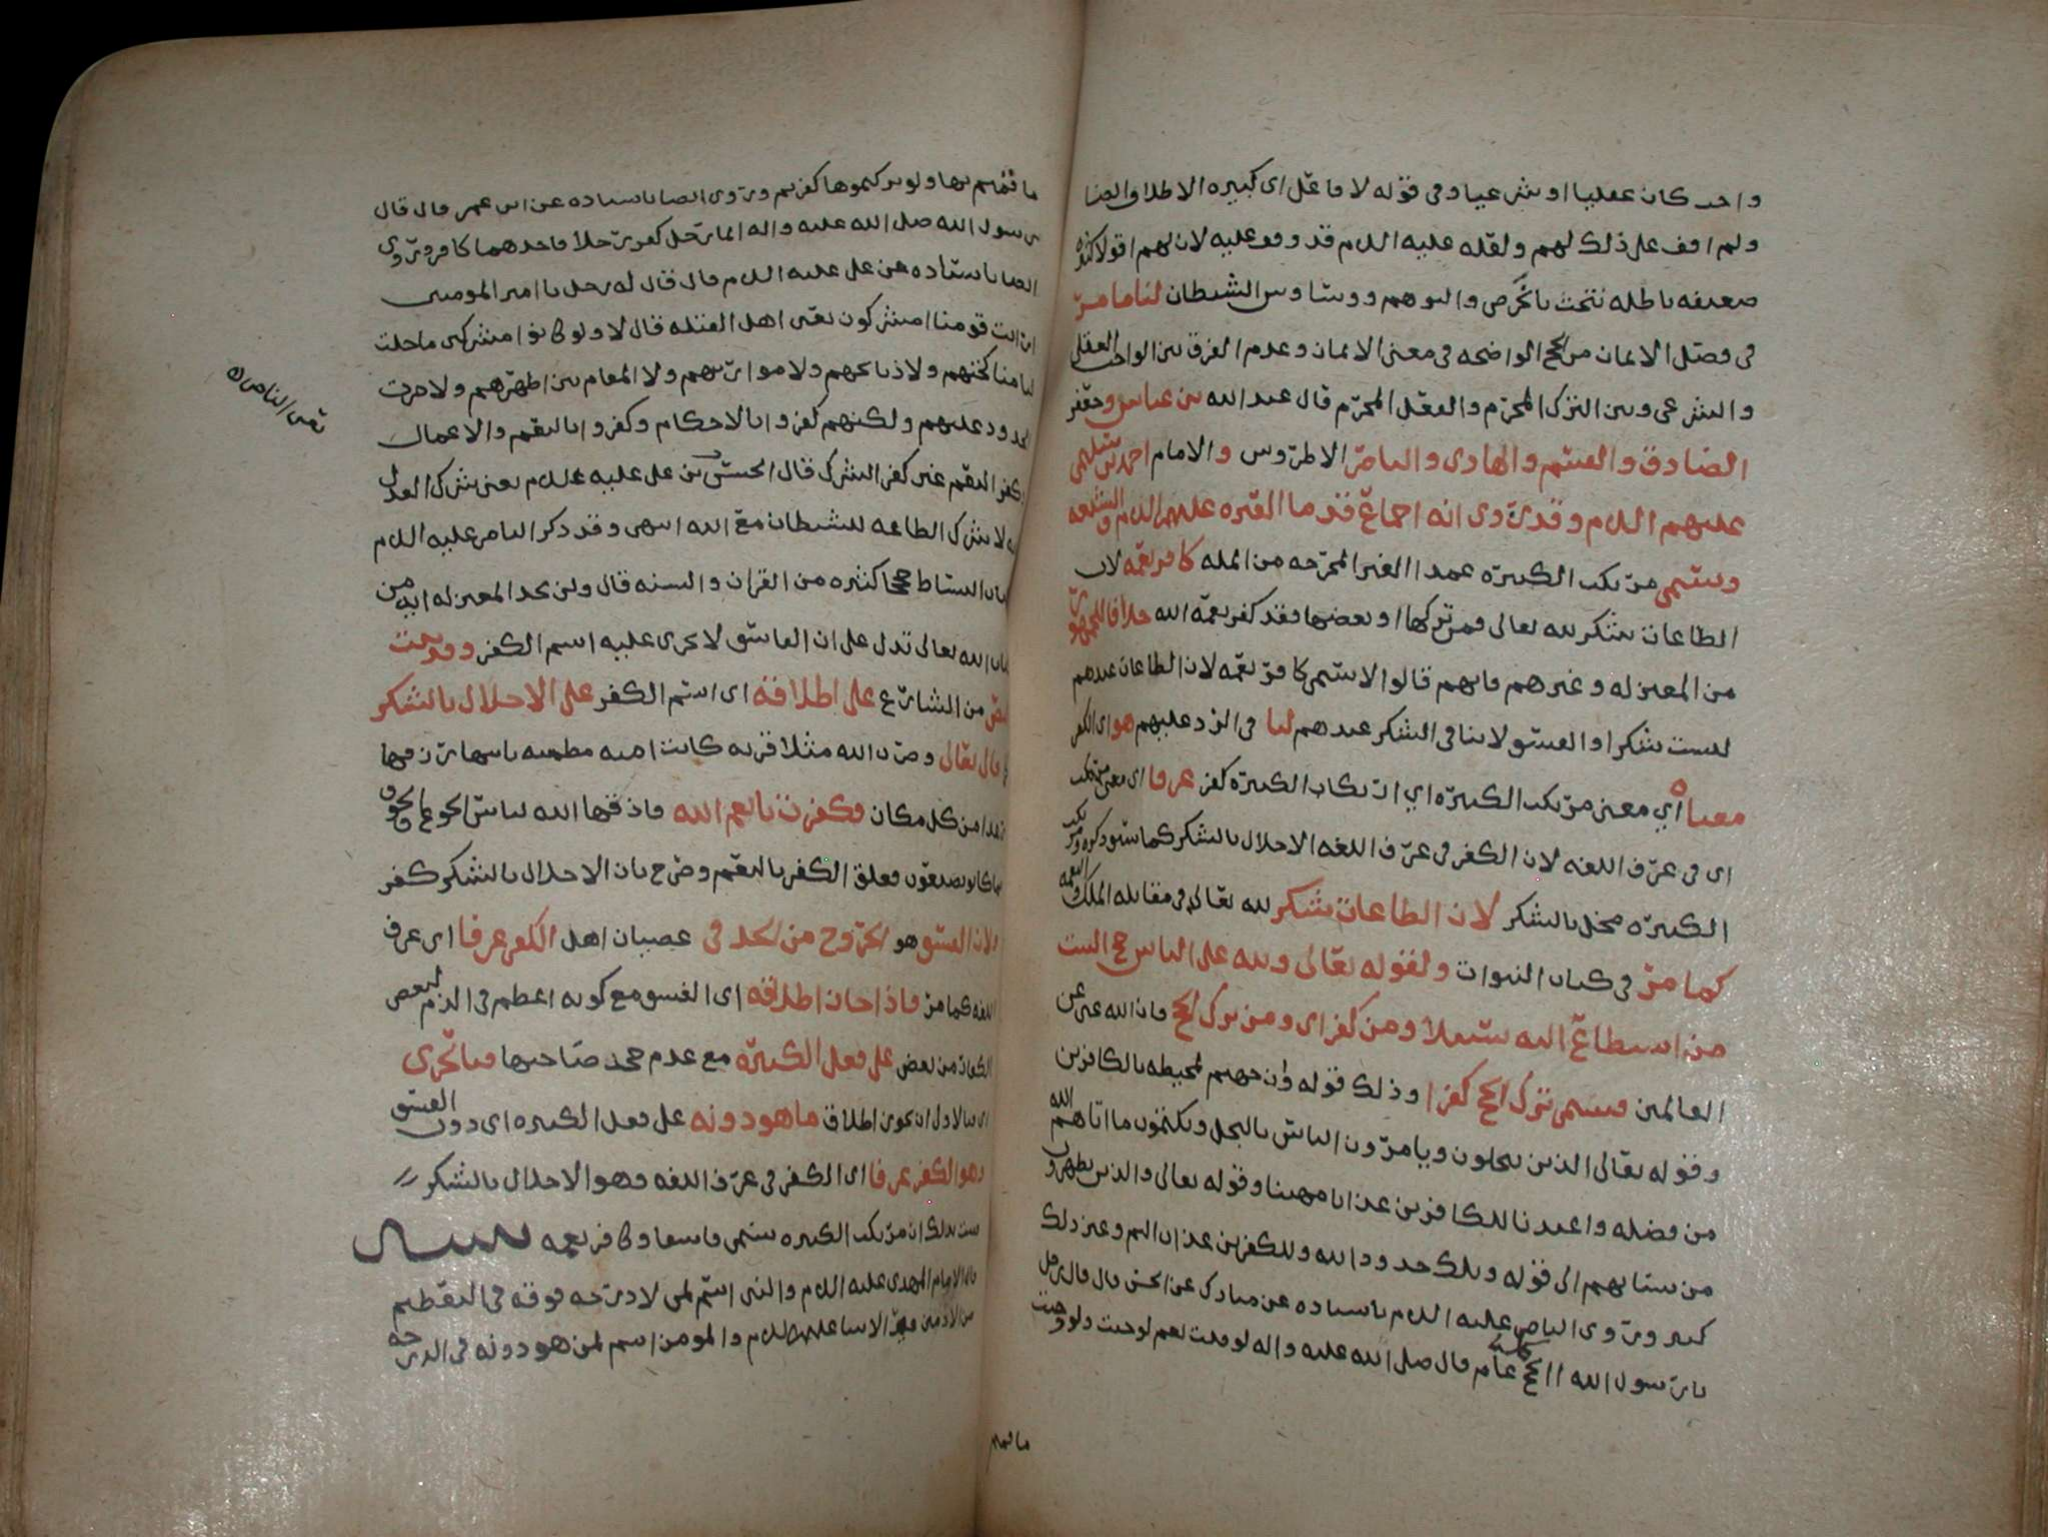 واحد كان عقليا او شرعيا وفي قوله لا فاعل اي كبيره الاطلاق ايضا
ولم اقف على ذلك لهم ولعله عليه السلام قد وقف عليه لان لهم اقوالا كثيره
ضعيفه باطله نتجت بالتخرص والتوهم ووساوس الشيطان لنا ما مر
في فصل الايمان من الحجج الواضحه في معنى الايمان وعدم الفرق بين الواجب العقلي
والشرعي وبين الترك المحرم والفعل المحرم قال عبد الله بن عباس وجعفر
الصادق والقسم والهادي والناصر الاطروش والامام احمد بن سليمن
عليهم السلام وقد روي انه اجماع قدما العتره عليهم السلام والشيعه
ويسمى مرتكب الكبيره عمدا الغير المخرجه من المله كافر نعمه لان
الطاعات شكر لله تعالى فمن تركها او بعضها فقد كفر نعمه الله خلافا للجمهور
من المعتزله وغيرهم فانهم قالوا لا يسمى كافر نعمه لان الطاعات عندهم
ليست شكرا والفسق لا ينافي الشكر عندهم لنا في الرد عليهم هو اي الكفر
معناه اي معنى مرتكب الكبيره اي ارتكاب الكبيره كفر عرفا اي معنى مرتكب
اي في عرف اللغه لان الكفر في عرف اللغه الاخلال بالشكر كما سنذكره ومرتكب
الكبيره مخل بالشكر لان الطاعات شكر لله تعالى في مقابله الملك والنعمه
كما مر في كتاب النبوات ولقوله تعالى ولله على الناس حج البيت
من استطاع اليه سبيلا ومن كفر اي ومن ترك الحج فان الله غني عن
العالمين فسمى ترك الحج كفرا وذلك قوله وان جهنم لمحيطه بالكافرين
وقوله تعالى الذين يبخلون ويامرون الناس بالبخل ويكتمون ما اتاهم الله
من فضله واعتدنا للكافرين عذابا مهينا وقوله تعالى والذين يظهرون
من نسائهم الى قوله وتلك حدود الله وللكفرين عذاب اليم وغير ذلك
كثير وروى الناصر عليه السلام باسناده عن مبارك عن الحسن قال قال رجل
يا رسول الله الحج كل عام قال صلى الله عليه واله لو قلت نعم لوجبت ولو وجبت
ما قمتم
ما قمتم بها ولو تركتموها كفرتم وروى ايضا باسناده عن ابن عمر قال قال
رسول الله صلى الله عليه واله ايما رجل كفر رجلا فاحدهما كافر وروى
ايضا باسناده عن علي عليه السلام قال قال له رجل يا امير المومنين
ارايت قومنا امشركون يعني اهل القبله قال لا ولو كانوا مشركين ما حلت
لنا مناكحتهم ولا ذبائحهم ولا مواريثهم ولا المقام بين اظهرهم ولا جرت
الحدود عليهم ولكنهم كفروا بالاحكام وكفروا بالنعم والاعمال
وكفر النعم غير كفر الشرك قال الحسين بن علي عليه السلام يعني شرك العدل
لا شرك الطاعه للشيطان مع الله انتهى وقد ذكر الناصر عليه السلام
يعني الناصر
كتاب البساط حججا كثيره من القران والسنه قال ولن يجد المعتزله ايه من
كتاب الله تعالى تدل على ان الفاسق لا يجري عليه اسم الكفر وقد ثبت
نص من الشارع على اطلاقه اي اسم الكفر على الاخلال بالشكر
قال تعالى وضرب الله مثلا قريه كانت امنه مطمئنه ياتيها رزقها
رغدا من كل مكان فكفرت بانعم الله فاذاقها الله لباس الجوع والخوف
بما كانوا يصنعون فعلق الكفر بالنعم وصرح بان الاخلال بالشكر كفر
ولان الفسق هو الخروج من الحد في عصيان اهل الكفر عرفا اي عرف
اللغه كما مر فاذا جاز اطلاقه اي الفسق مع كونه اعظم في الذم لبعض
الكفار من بعض على فعل الكبيره مع عدم جحد صاحبها فبالحري
اي بالاولى ان يجوز اطلاق ما هو دونه على فعل الكبيره اي دون الفسق
وهو الكفر عرفا اي الكفر في عرف اللغه وهو الاخلال بالشكر
ثبت بذلك ان مرتكب الكبيره يسمى فاسقا وكافر نعمه تنبيه
قال الامام المهدي عليه السلام والنبي اسم لمن لا درجه فوقه في التعظيم
من الادميين الانبيا عليهم السلام والمومن اسم لمن هو دونه في الدرجه